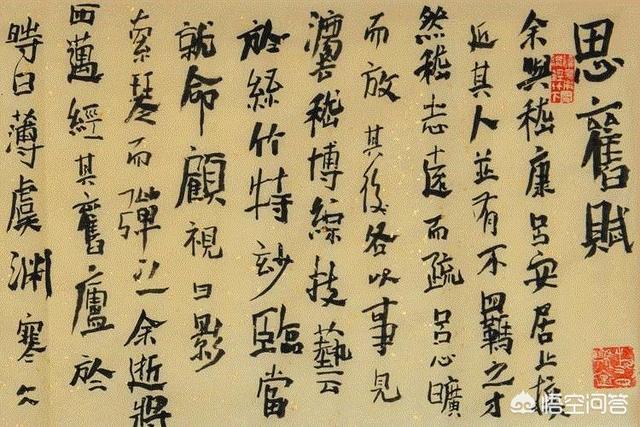 思舊賦
余與嵇康呂安居止接
近其人並有不羈之才
然嵇志遠而疏呂心曠
而放其後各以事見
灋嵇博綜技藝
於絲竹特妙臨當
就命顧視日影
索琴而彈之余逝將
西邁經其舊廬於
時日薄虞淵寒仌
悟空问答